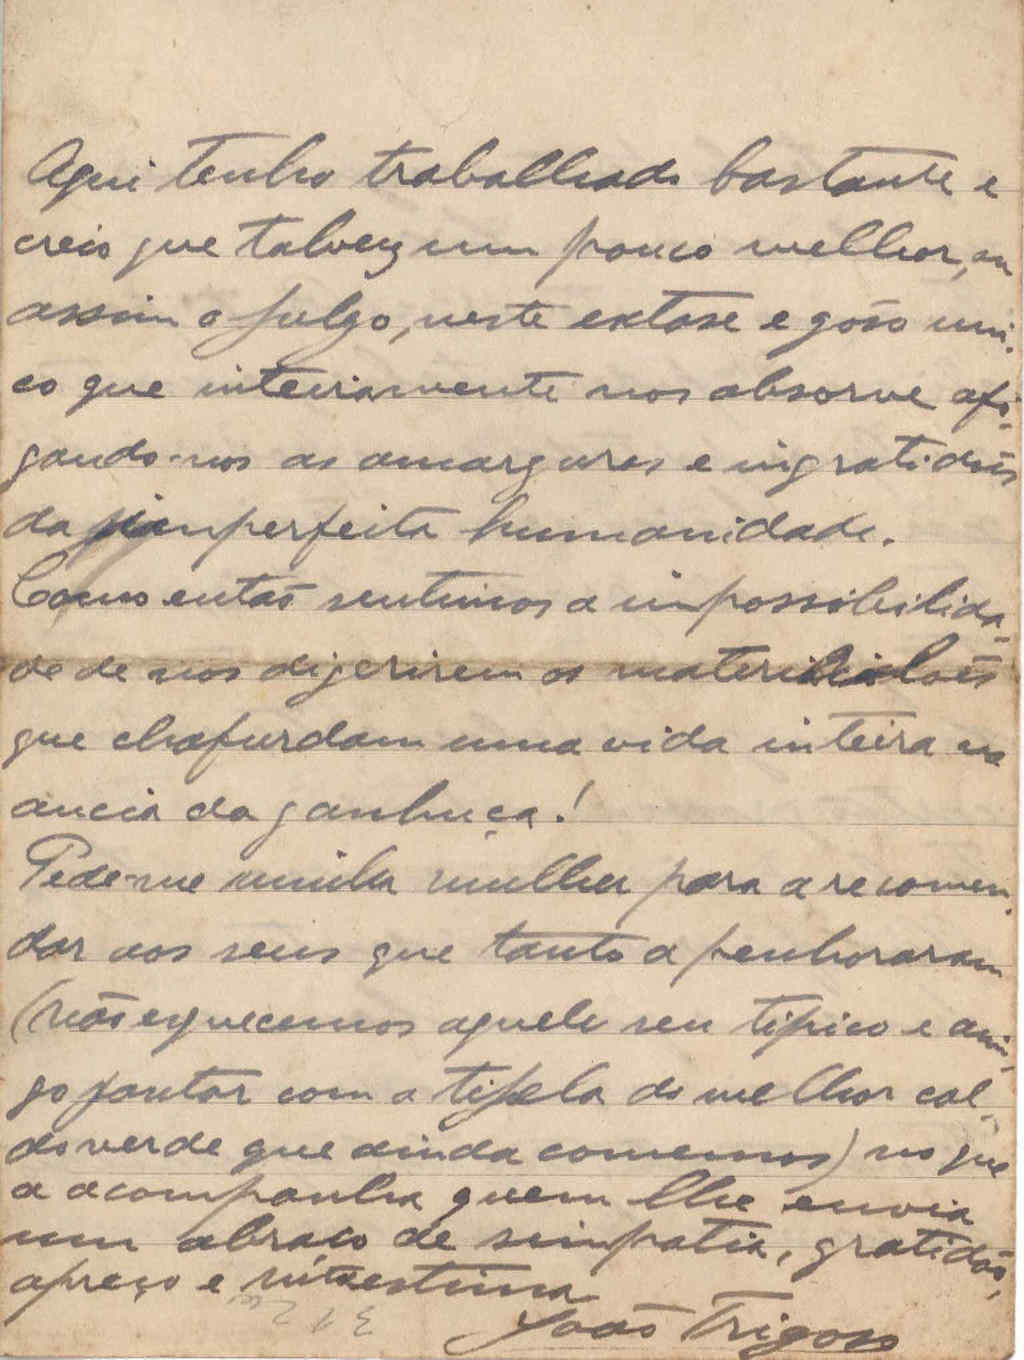 Aqui tenho trabalhado bastante e
creio que talvez um pouco melhor, eu
assim o julgo, neste extase e gôso uni-
co que inteiramente nos absorve afo-
gando-nos as amarguras e ingratidões
da imperfeita humanidade.
Como então sentimos a impossibilida-
de de nos digerirem os materialões
que chafurdam uma vida inteira na
ancia da ganhuça!
Pede-me minha mulher para a recomen-
dar aos seus que tanto a penhoraram
(não esquecemos aquele seu tipico e ami-
go jantar com a tijela do melhor cal-
do verde que ainda comemos) no que
a acompanha quem lhe envia
um abraço de simpatia, gratidão,
apreço e estima
João Trigoso